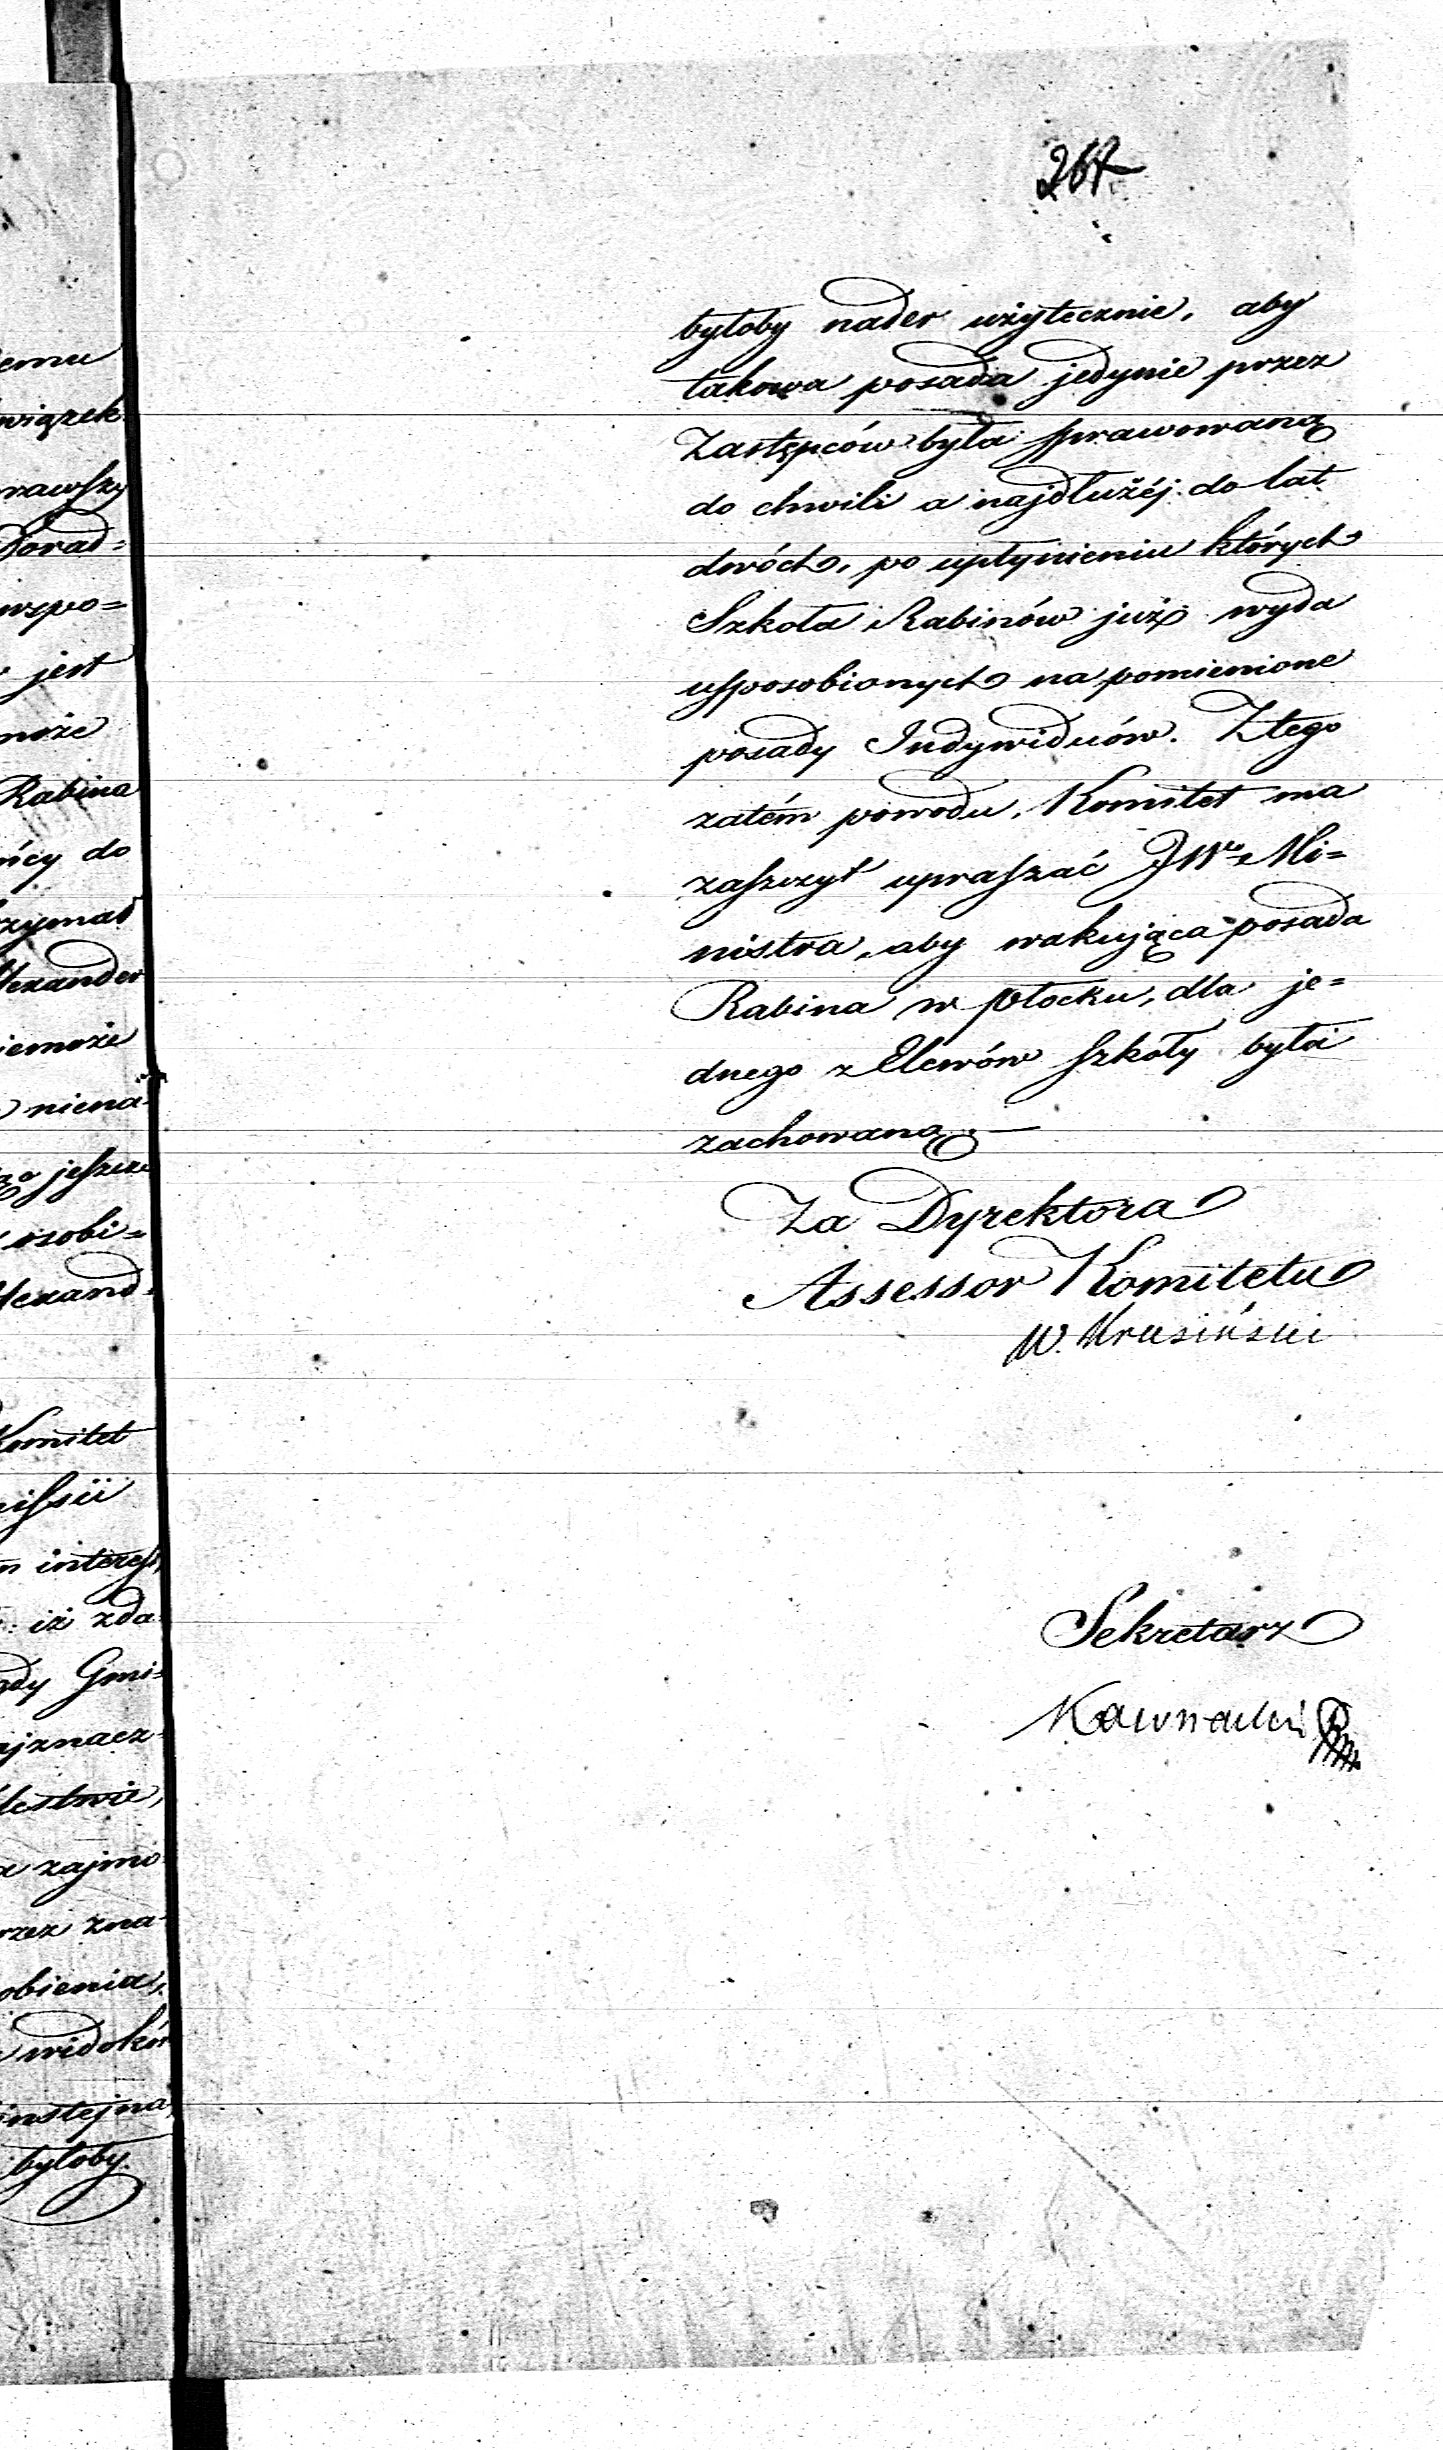 267
byłoby nader użytecznie, aby
takowa posada jedynie przez
Zastępców była sprawowaną
do chwili a najdłużéj do lat
dwóch, po upłynieniu których
Szkoła Rabinów już wyda
usposobionych na pomienione
posady Indywiduów. Ztego
zatém powodu, Komitet ma
zaszczyt upraszać JWo Mi=
nistra, aby wakująca posada
Rabina w Płocku, dla je=
dnego z Elewów szkoły była
zachowaną.—
Za Dyrektora
Assessor Komitetu
W. Krusiński
Sekretarz
emu
wiązek
rawszy
Porad=
wspo=
jest
może
Rabina
ńcy do
rzymał
lexander
iemoże
niena=
jeszcze
osobi=
lexand=
Komitet
missii
m interess
iż zda
ady Gmi=
ajznacz=
lestwie,
zajmo
rzez zna=
obienia,
widoków
insztejna
byłoby.